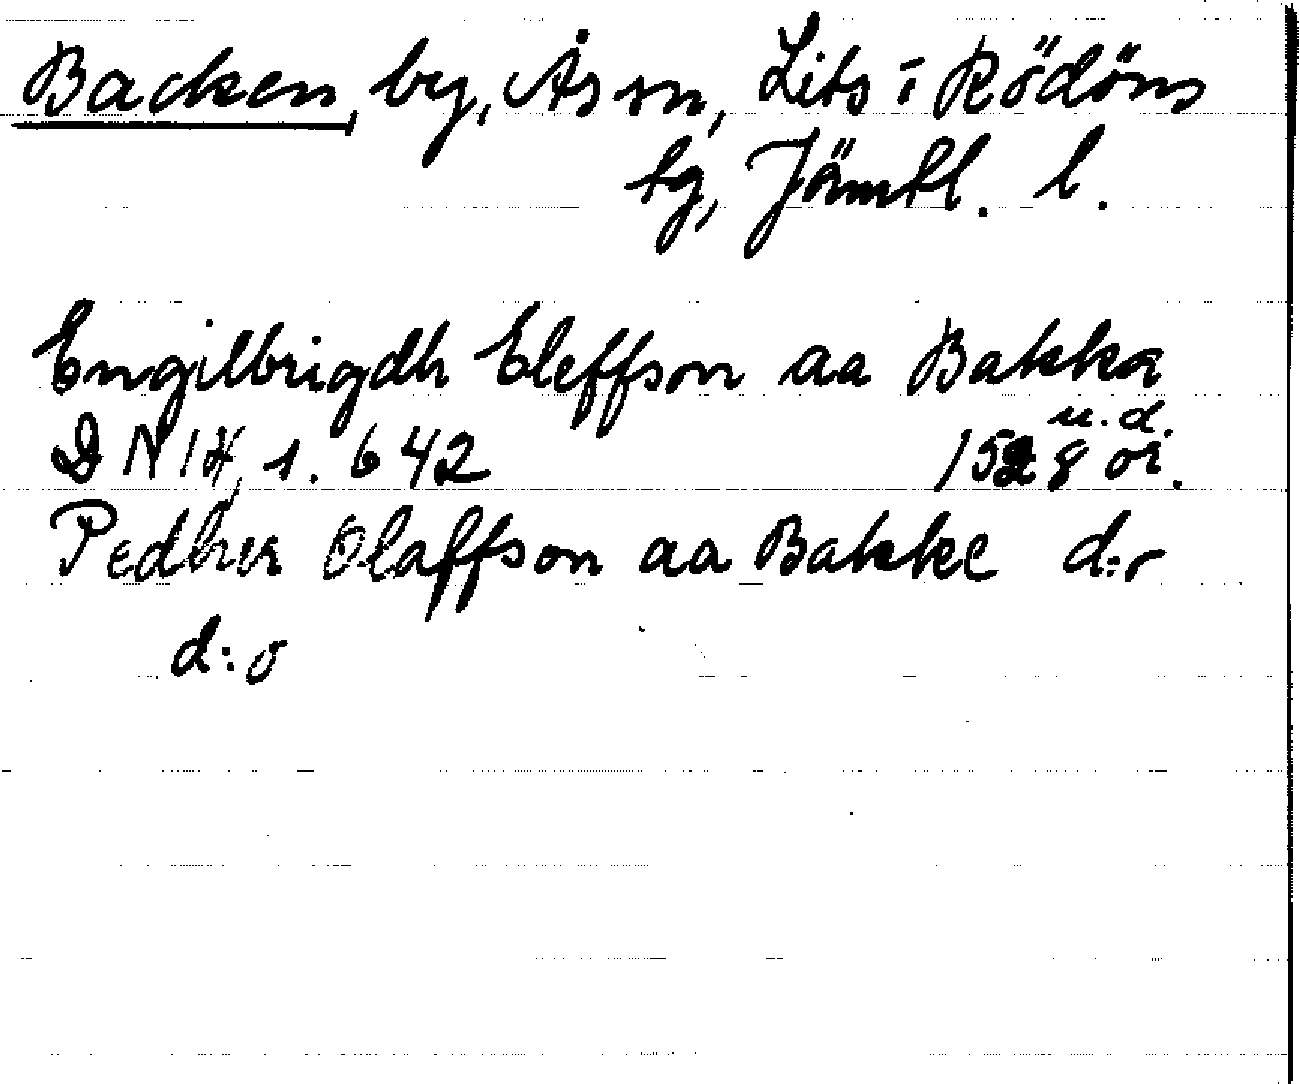 Backen, by, Ås sn, Lits o Rödöns
tg, Jämtl. l.
Engilbrigdh Eleffson aa Bakka
u. d.
DN 14, s. 642 1528 or.
Pedher Olaffson aa Bakke d:o
d:o